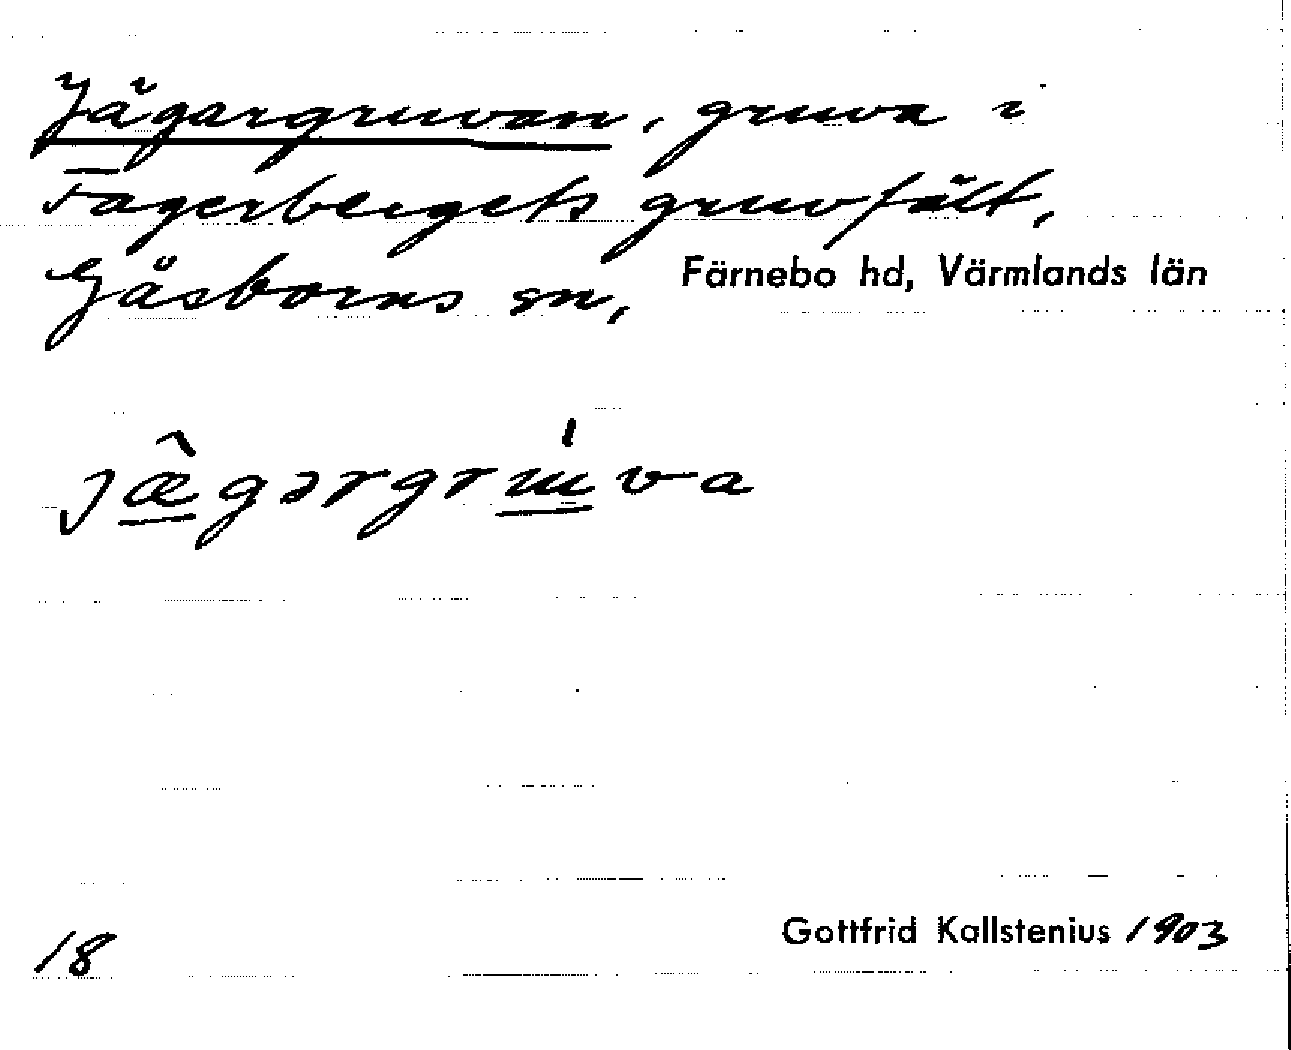 Jägargruvan, gruva i
Fagerbergets gruvfält,
Gåsborns sn, Färnebo hd, Värmlands län
jæ̂gərgrúva
18 Gottfrid Kallstenius 1903